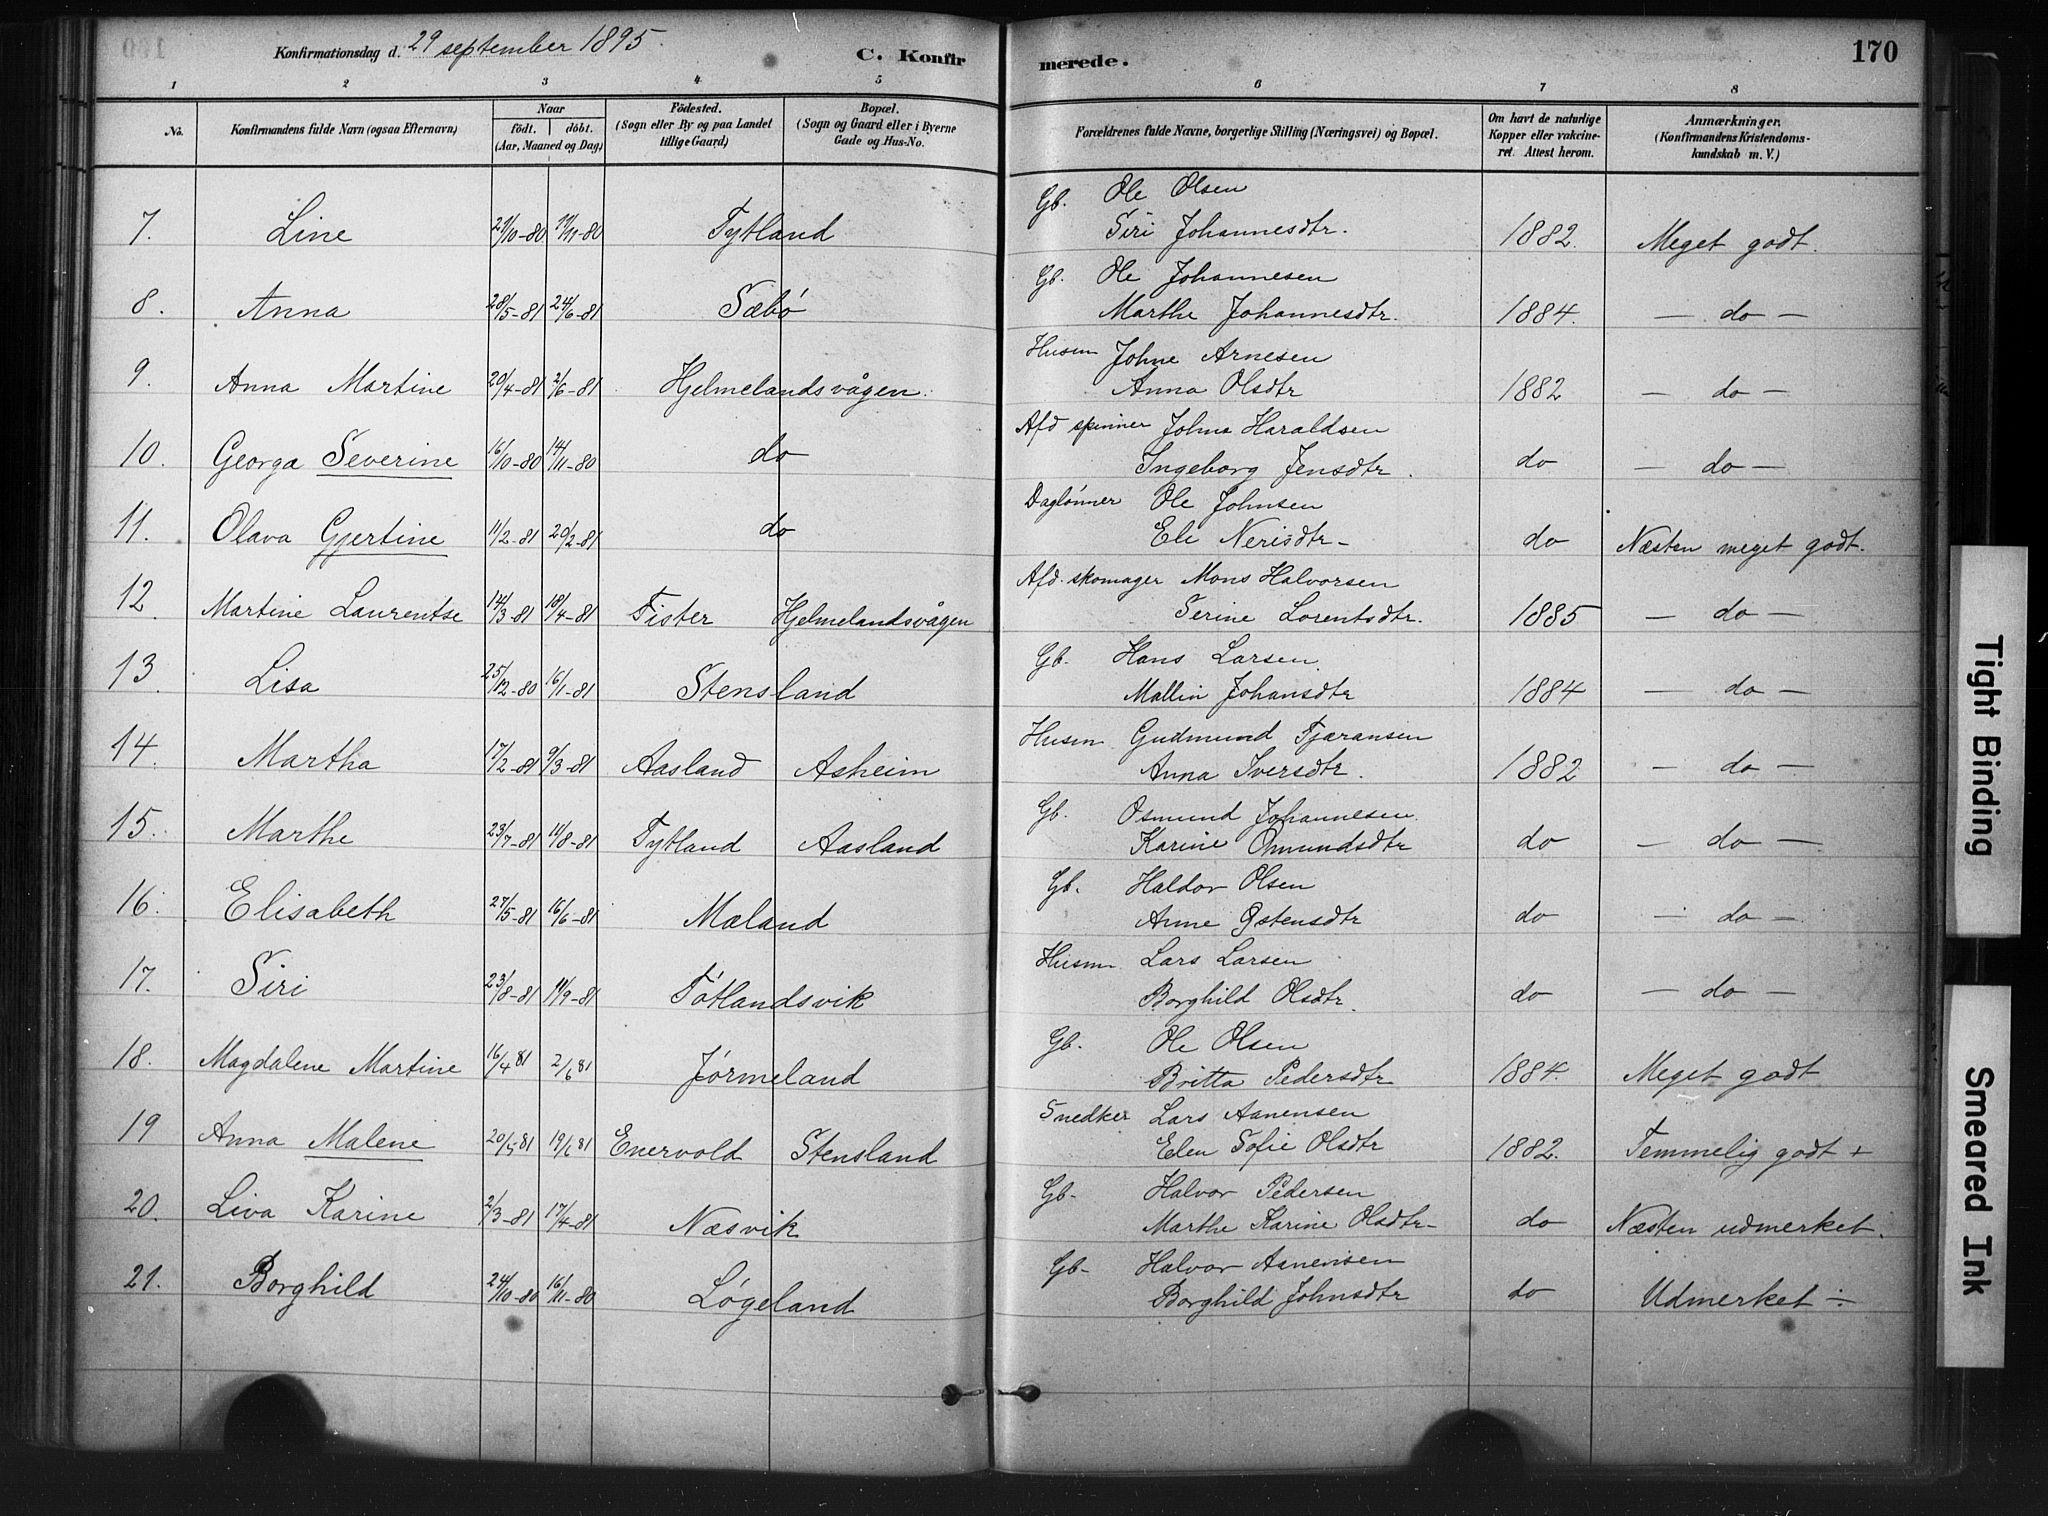 Konfirmationsdag d. 29 september 1895.
C. Konfirmerede.
170
1 2 3 4 5 6 7 8
No.
Konfirmandens fulde Navn (ogsaa Efternavn)
Naar
født. døbt.
(Aar, Maaned og Dag)
Födested.
(Sogn eller By og paa Landet
tillige Gaard)
Bopæl.
(Sogn og Gaard eller i Byerne
Gade og Hus-No.
Forældrenes fulde Navne, borgerlige Stilling (Næringsvei) og Bopæl.
Om havt de naturlige
Kopper eller vakcine-
ret. Attest herom.
Anmærkninger.
(Konfirmandens Kristendoms-
kundskab m. V.)
Gb. Ole Olsen
7. Line 29/10-80 14/11-80 Tytland Siri Johannesdtr. 1882. Meget godt.
Gb. Ole Johannesen
8. Anna 28/5-81 24/6-81 Sæbø Marthe Johannesdtr. 1884. — do —
Husm Johne Arnesen
9. Anna Martine 20/4-81 2/6-81 Hjelmelandsvågen. Anna Olsdtr 1882 — do —
Afd spinner Johne Haraldsen
10. Georga Severine 16/10-80 14/11-80 do Ingeborg Jensdtr. do — do —
Daglønner Ole Johnsen
11. Olava Gjertine 11/2-81 20/2-81 do Eli Nerisdtr- do Næsten meget godt.
Afd. skomager Mons Halvorsen
12 Martine Laurentse 14/3-81 18/4-81 Fister Hjelmelandsvågen Serine Lorentsdtr. 1885 — do —
Gb. Hans Larsen.
13. Lisa 25/12-80 16/1-81 Stensland Mallin Johansdtr 1884 — do —
Husm Gudmund Tjæransen
14. Martha 17/2-81 9/3-81 Aasland Asheim Anna Iversdtr. 1882 — do —
Gb. Osmund Johannesen.
15. Marthe 23/7-81 11/8-81 Tytland Aasland Karine Omundsdtr do — do —
Gb. Haldor Olsen
16. Elisabeth 27/5-81 16/6-81 Mæland Anne Østensdtr do — do —
Husm Lars Larsen
17. Siri 23/8-81 11/9-81 Tøtlandsvik Borghild Olsdtr. do — do —
Gb. Ole Olsen
18. Magdalene Martine 16/4 81 2/6 81 Jørmeland Britta Pedersdtr 1884. Meget godt
Snedker Lars Aanensen
19 Anna Malene 20/5 81 19/6 81 Enervold Stensland Elen Sofie Olsdtr 1882. Temmelig godt +
Gb- Halvor Pedersen
20. Liva Karine 2/3-81 17/4-81 Næsvik Marthe Karine Olsdtr- do Næsten udmerket.
Gb- Halvor Aanensen
21. Borghild 24/10-80 16/11-80 Løgeland Borghild Johnsdtr do Udmerket ÷
Tight Binding
Smeared Ink